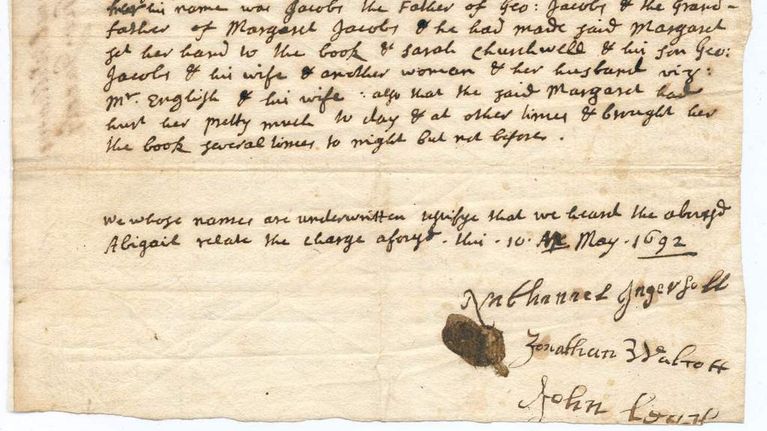 his name was Jacobs the Father of Geo: Jacobs & the Grand-
father of Margaret Jacobs & he had made said Margaret
set her hand to the book & Sarah Churchwell & his son Geo:
Jacobs & his wife & another woman & her husband viz:
Mr. English & his wife : also that the said Margaret had
hurt her pretty much to day & at other times & brought her
the book several times to night but not before.
we whose names are underwritten testifye that we heard the abovesd
Abigail relate the charge aforesd. this - 10. May - 1692
Nathaniel Ingersoll
Jonathan Walcott
John